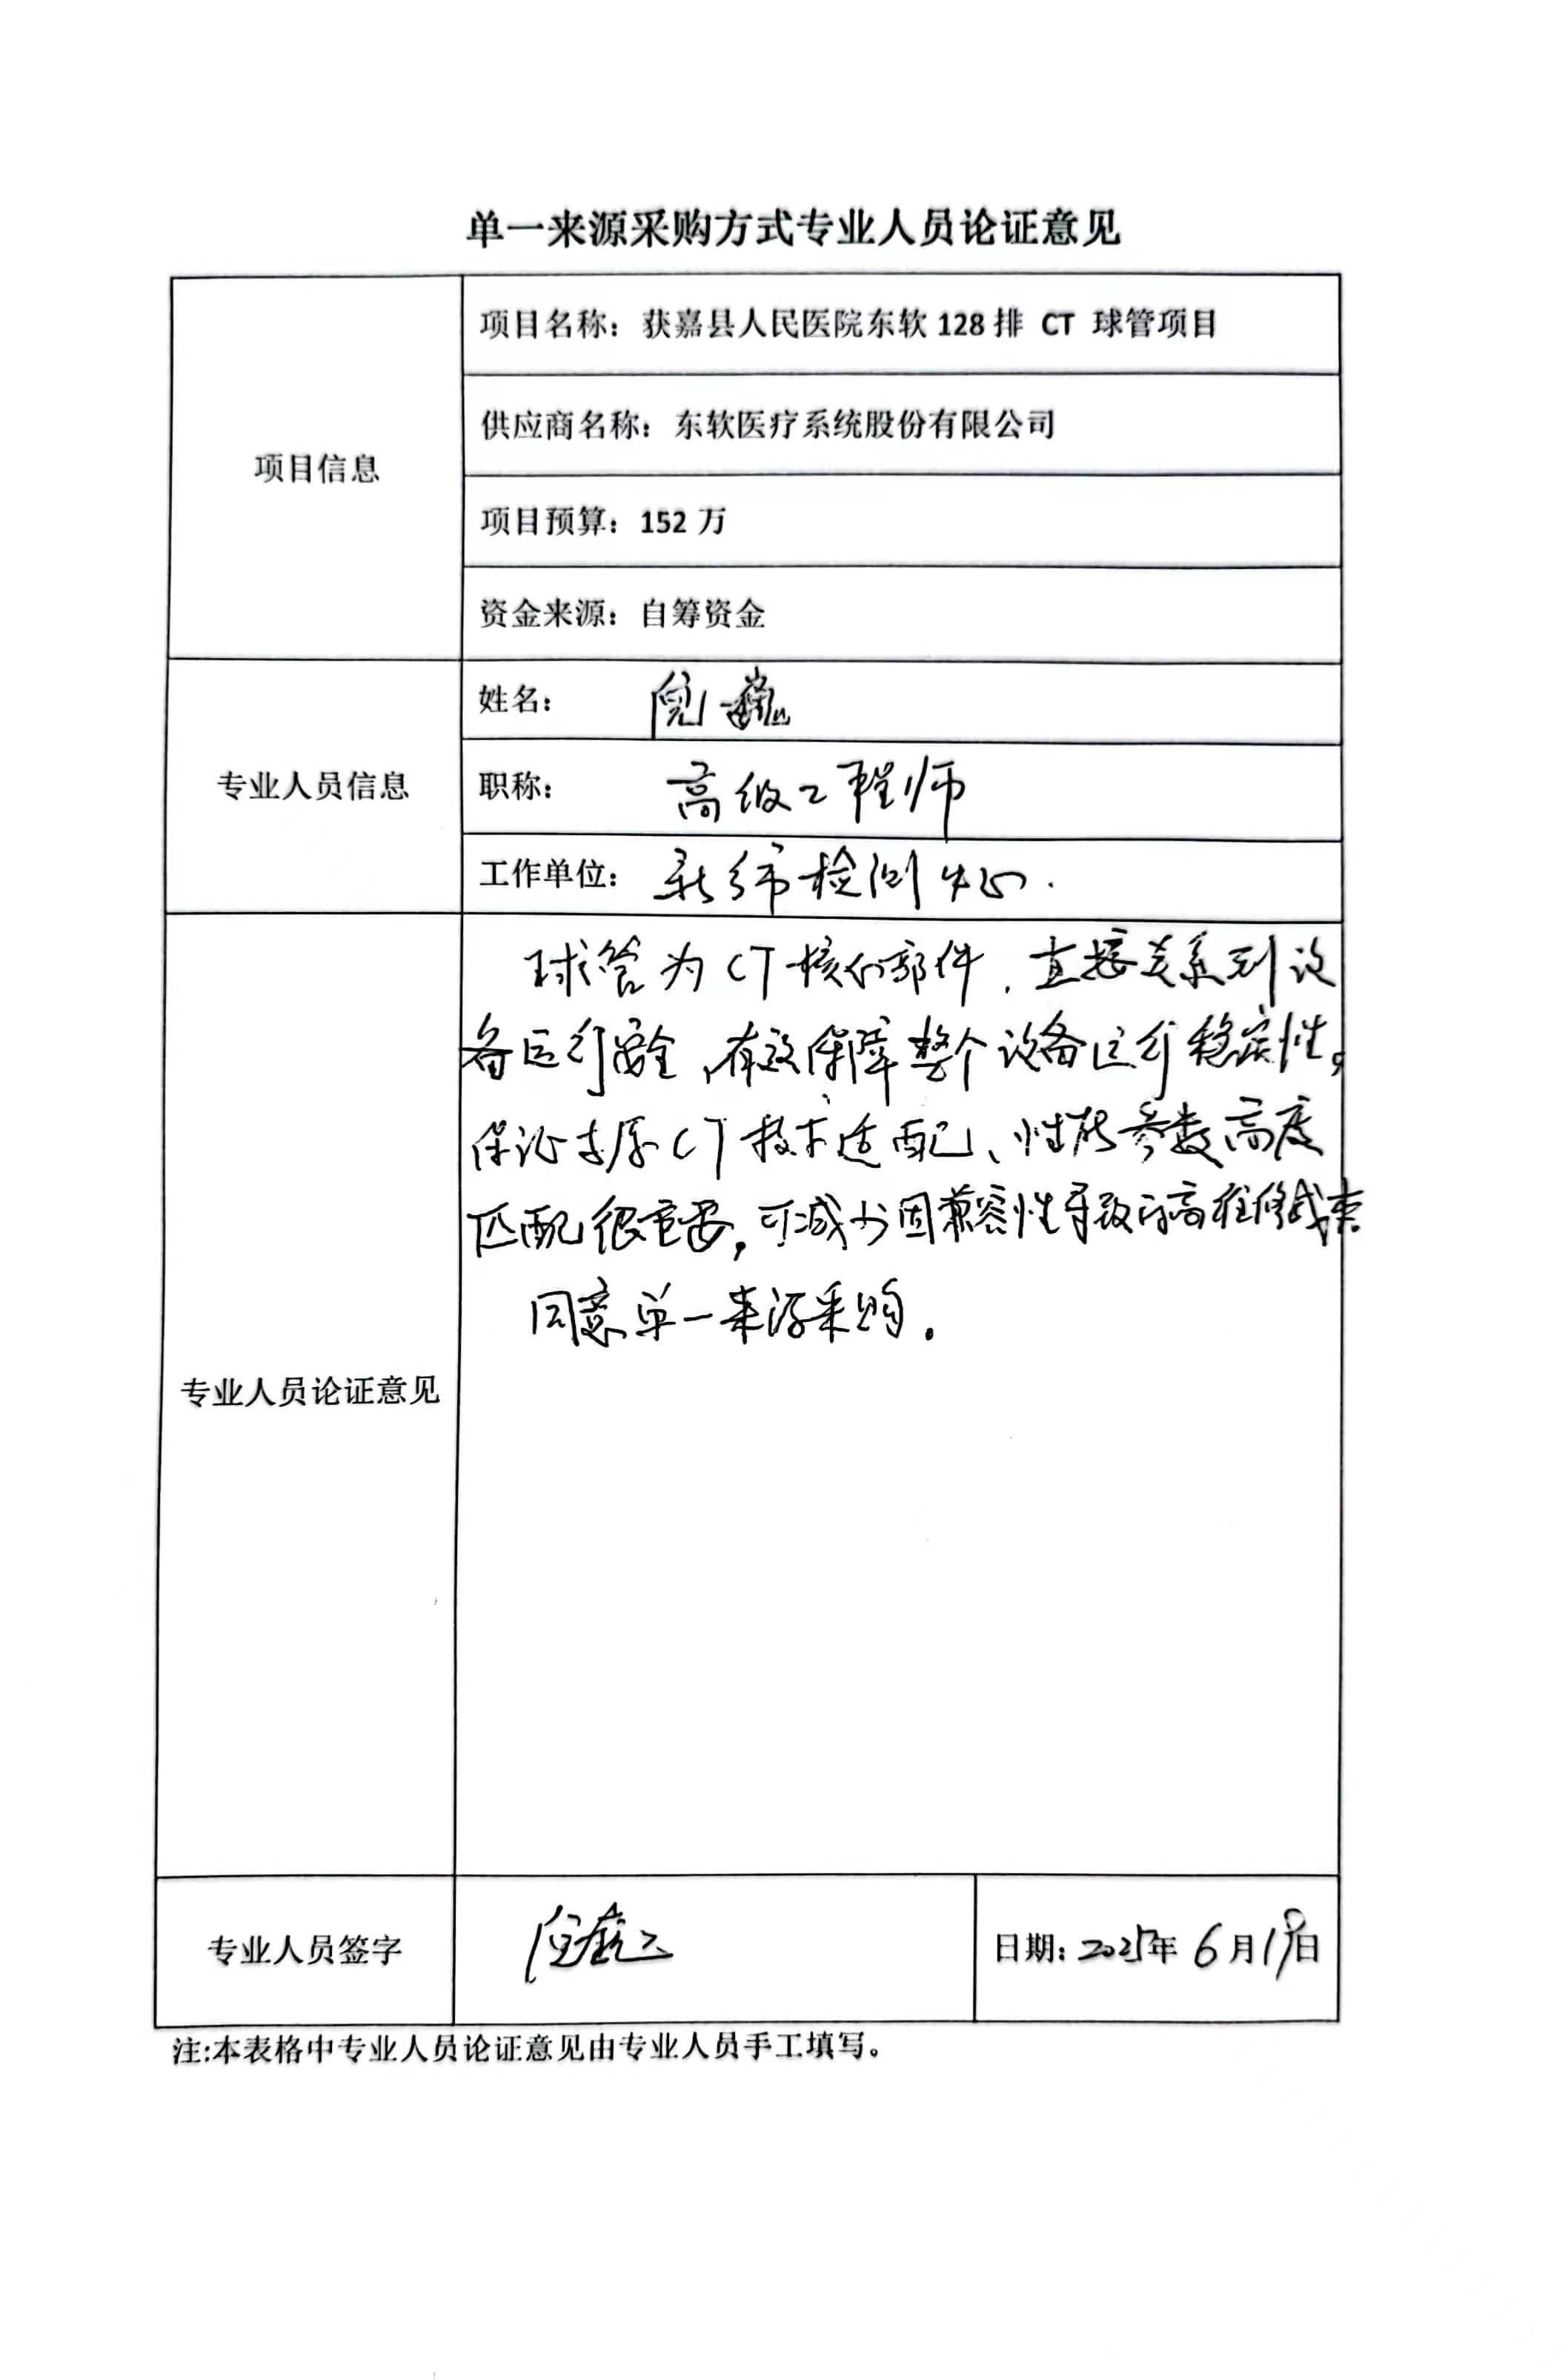 单一来源采购方式专业人员论证意见
项目信息
项目名称：获嘉县人民医院东软 128 排 CT 球管项目
供应商名称：东软医疗系统股份有限公司
项目预算：152 万
资金来源：自筹资金
专业人员信息
姓名：倪巍
职称：高级工程师
工作单位：新乡市检测中心.
专业人员论证意见
球管为CT核心部件，直接关系到设
备运行安全，有效保障整个设备运行稳定性。
保证与原CT技术适配、性能参数高度
匹配很重要，可减少因兼容性导致的高维修成本
同意单一来源采购.
专业人员签字
倪巍
日期：2025年 6 月 19日
注:本表格中专业人员论证意见由专业人员手工填写。